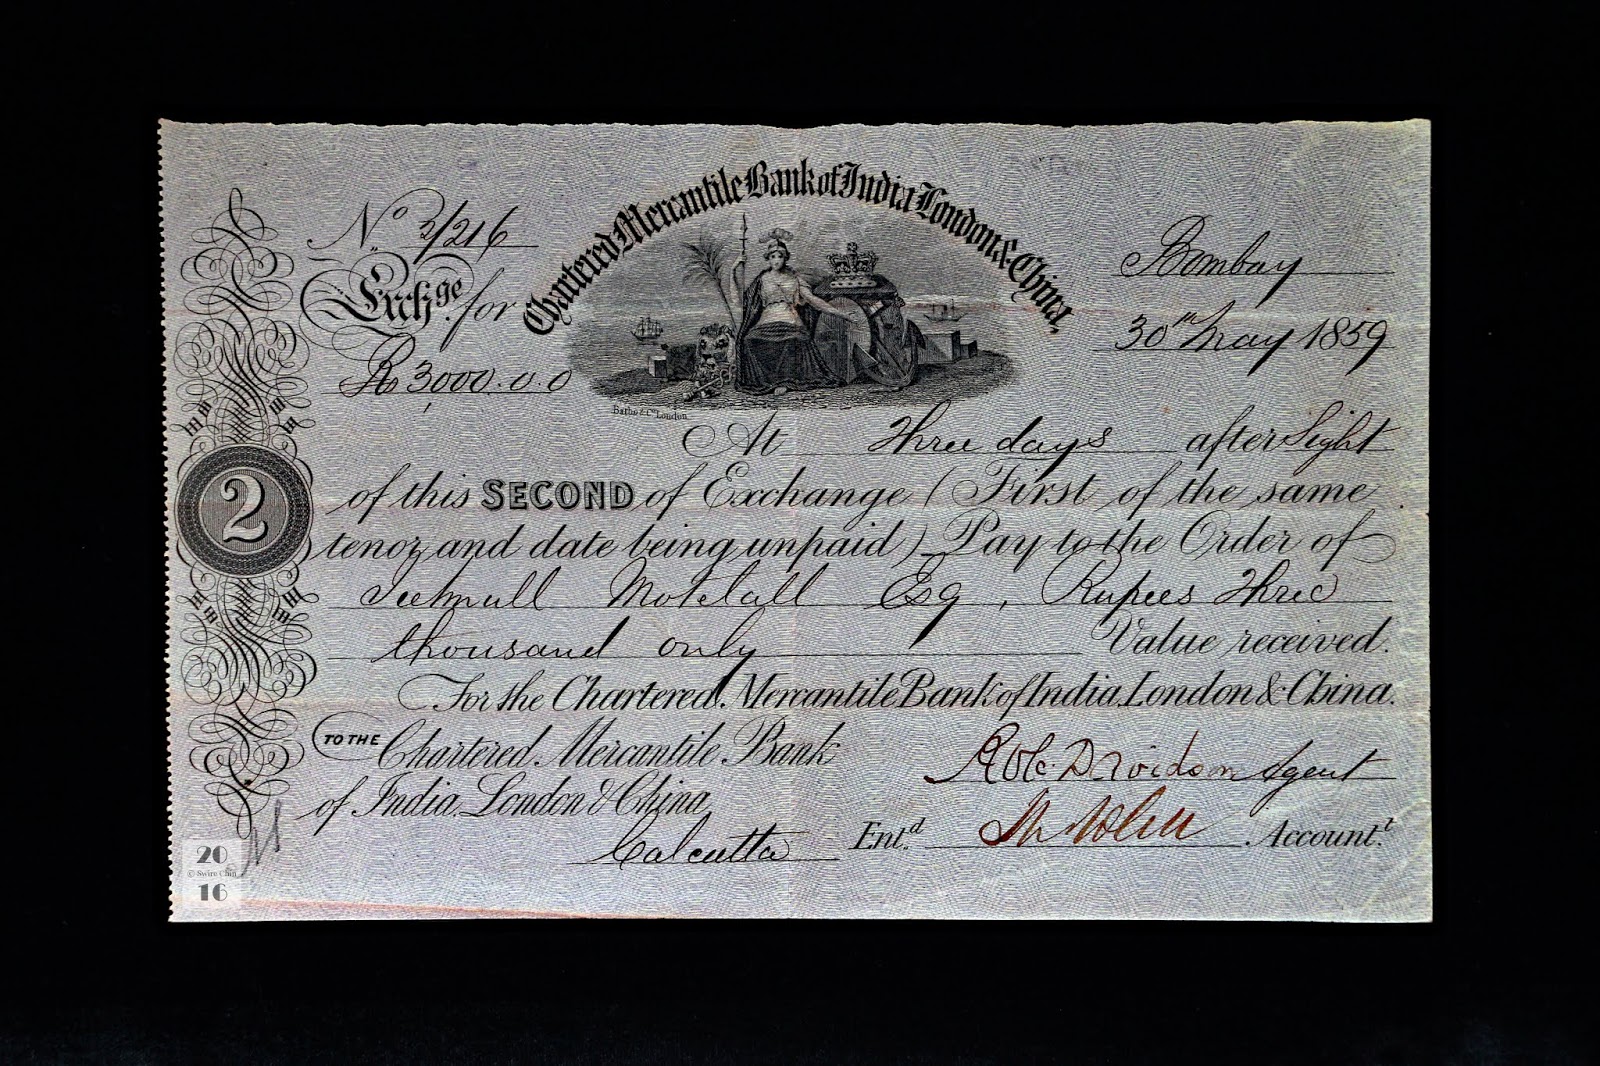 Chartered Mercantile Bank of India London & China.
No. 2/216
Bombay
Exchge. for
30th May 1859
Rs 3000.0.0
Bathe & Co. London
At Three days after Sight
of this SECOND of Exchange (First of the same
tenor and date being unpaid) Pay to the Order of
Jeetmull Motelall Esq, Rupees Three
thousand only Value received.
For the Chartered Mercantile Bank of India, London & China.
2
TO THE Chartered Mercantile Bank
of India, London & China
Calcutta
Robt. Davidson Agent
Entd. Accountt.
20
© Swire Chin
16